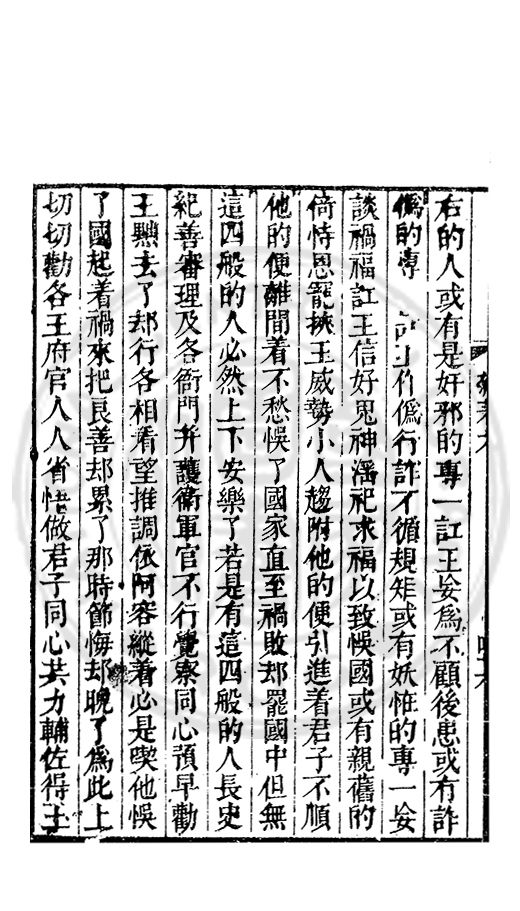 右的人或有是奸邪的專一訌王妄爲不顧後患或有詐
僞的專　訌王作僞行詐不循規矩或有妖怪的專一妄
談禍福訌王信好鬼神滛祀求福以致悞國或有親舊的
倚恃恩寵挾王威勢小人趨附他的便引進着君子不順
他的便離間着不愁悞了國家直至禍敗却罷國中但無
這四般的人必然上下安樂了若是有這四般的人長史
紀善審理及各衙門并護衛軍官不行覺察同心預早勸
王㸃去了却行各相看望推調依阿容縱着必是喫他悞
了國起着禍來把良善却累了那時節悔却晚了爲此上
切切勸各王府官人人省悟做君子同心共力輔佐得王